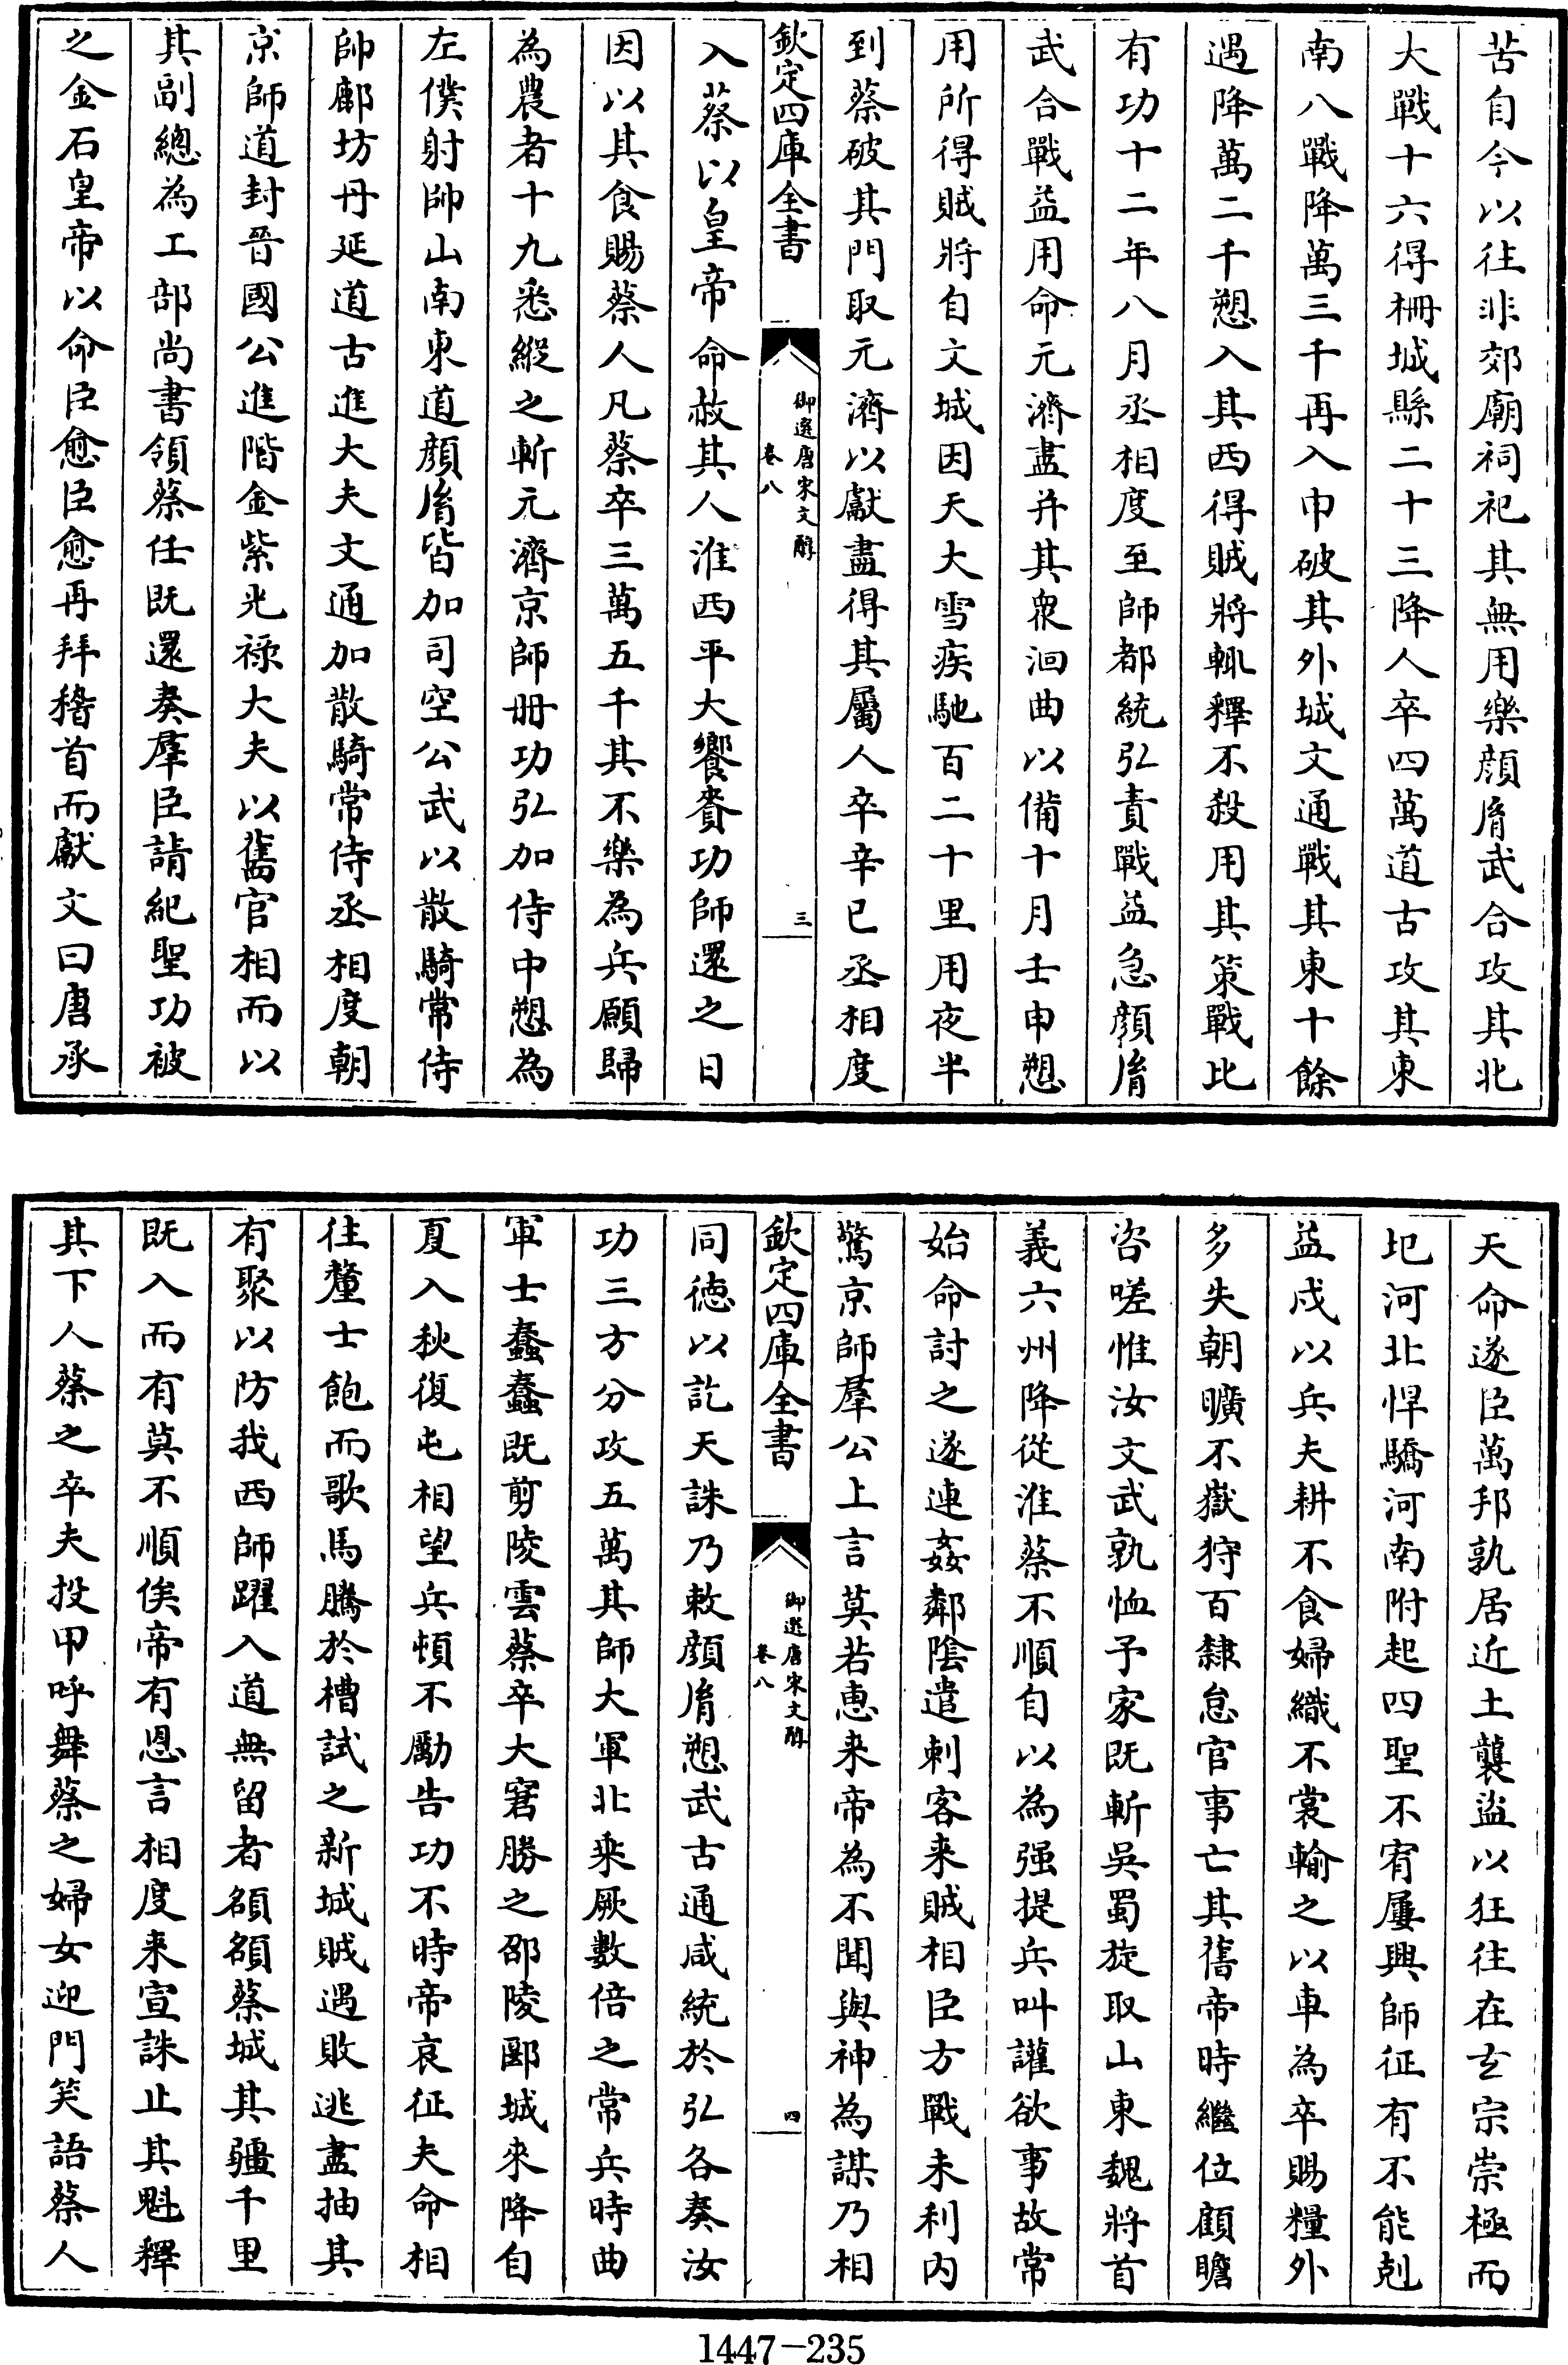 苦自今以往非郊廟祠祀其無用樂顏胤武合攻其北
大戰十六得柵城縣二十三降人卒四萬道古攻其東
南八戰降萬三千再入申破其外城文通戰其東十餘
遇降萬二千愬入其西得賊將輒釋不殺用其策戰比
有功十二年八月丞相度至師都統弘責戰益急顏胤
武合戰益用命元濟盡并其衆洄曲以備十月壬申愬
用所得賊將自文城因天大雪疾馳百二十里用夜半
到蔡破其門取元濟以獻盡得其屬人卒辛巳丞相度
欽定四庫全書
御選唐宋文醇
卷八
三
入蔡以皇帝命赦其人淮西平大饗賚功師還之日
因以其食賜蔡人凡蔡卒三萬五千其不樂為兵願歸
為農者十九悉縱之斬元濟京師冊功弘加侍中愬為
左僕射帥山南東道顏胤皆加司空公武以散騎常侍
帥鄜坊丹延道古進大夫文通加散騎常侍丞相度朝
京師道封晉國公進階金紫光祿大夫以舊官相而以
其副總為工部尚書領蔡任既還奏羣臣請紀聖功被
之金石皇帝以命臣愈臣愈再拜稽首而獻文曰唐承
天命遂臣萬邦孰居近土襲盜以狂往在玄宗崇極而
圮河北悍驕河南附起四聖不宥屢興師征有不能剋
益戍以兵夫耕不食婦織不裳輸之以車為卒賜糧外
多失朝曠不嶽狩百隸怠官事亡其舊帝時繼位顧瞻
咨嗟惟汝文武孰恤予家既斬吳蜀旋取山東魏將首
義六州降從淮蔡不順自以為强提兵叫讙欲事故常
始命討之遂連姦鄰隂遣刺客来賊相臣方戰未利内
驚京師羣公上言莫若惠来帝為不聞與神為謀乃相
欽定四庫全書
御選唐宋文醇
卷八
四
同德以訖天誅乃敕顏胤愬武古通咸統於弘各奏汝
功三方分攻五萬其師大軍北乘厥數倍之常兵時曲
軍士蠢蠢既剪陵雲蔡卒大窘勝之邵陵郾城來降自
夏入秋復屯相望兵頓不勵告功不時帝哀征夫命相
往釐士飽而歌馬騰於槽試之新城賊遇敗逃盡抽其
有聚以防我西師躍入道無留者頟頟蔡城其疆千里
既入而有莫不順俟帝有恩言相度来宣誅止其魁釋
其下人蔡之卒夫投甲呼舞蔡之婦女迎門笑語蔡人
1447-235